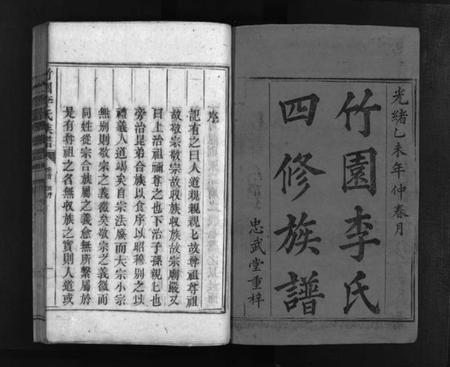 光緒乙未年仲春月
竹園李氏
四修族譜
忠武堂重梓
序
記有之曰人道親親親親故尊祖尊祖
故敬宗敬宗故收族收族故宗廟嚴又
曰上治祖禰尊尊也下治子孫親親也
旁治昆弟合族以食序以昭穆别之以
禮義人道竭矣自宗法廢而大宗小宗
無别則敬宗之義微矣敬宗之義微而
同姓從宗合族屬之義愈無所繫屬於
是有尊祖之名無收族之實則人道或